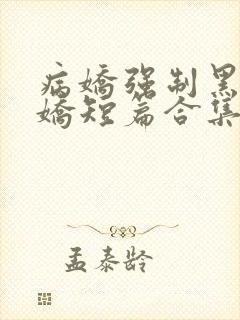 病娇强制黑
娇短篇合集
孟泰龄